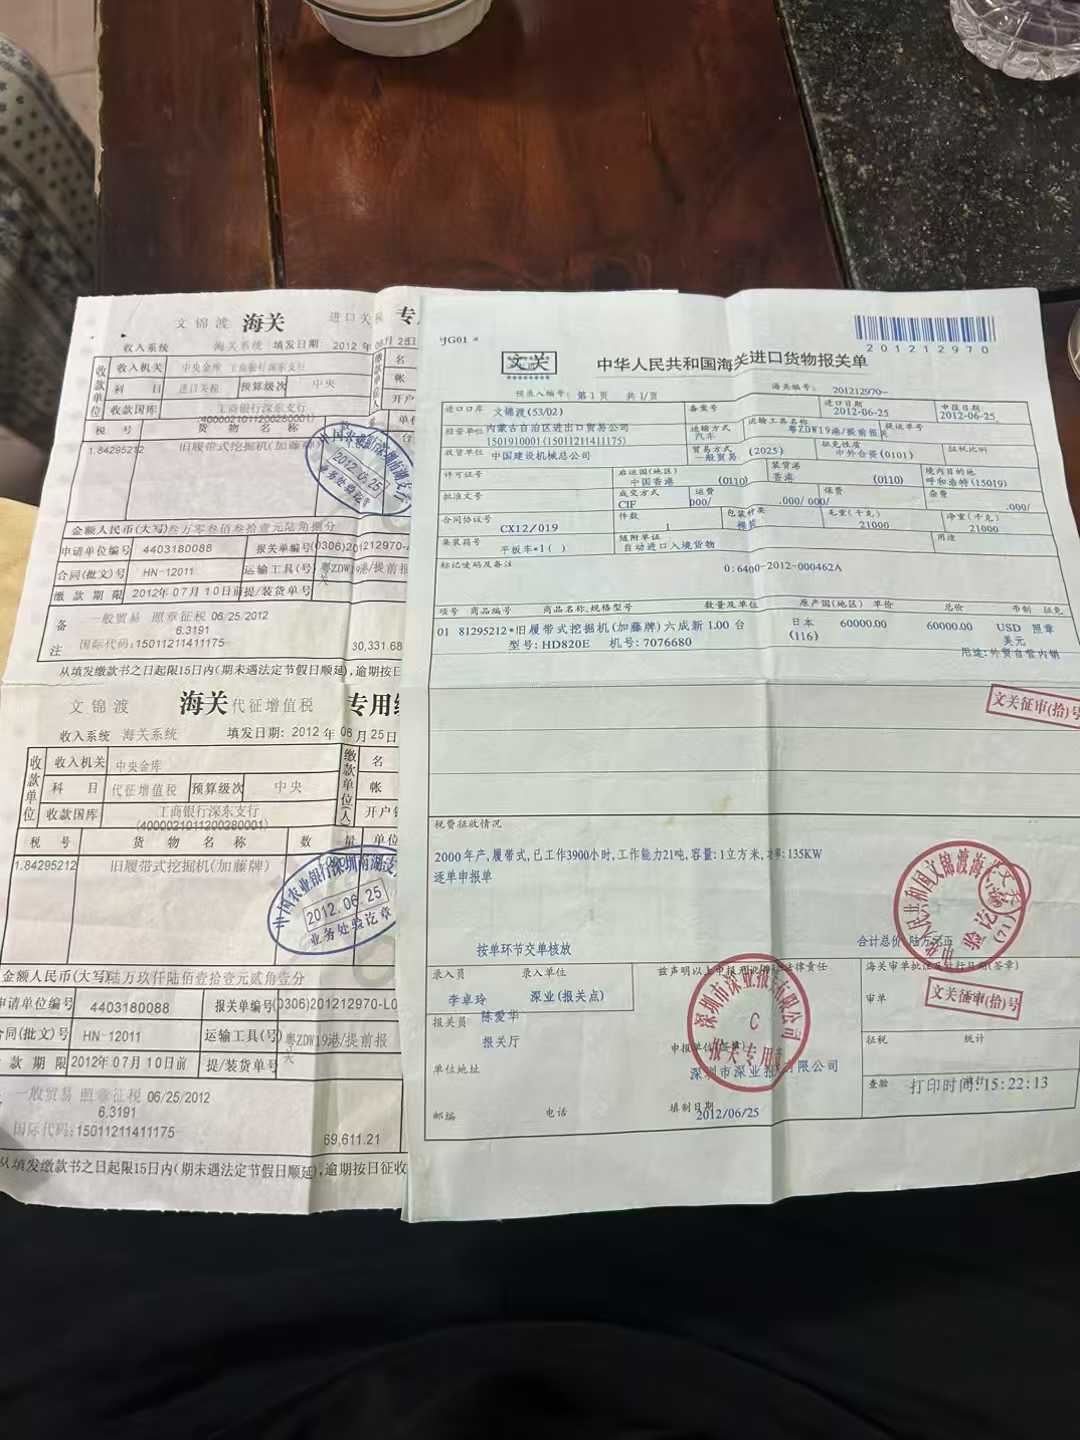 文锦渡 海关 进口关税 专用
收入系统 海关系统 填发日期 2012 年
收款单位 收入机关 中央金库 工商银行深东支行
科 目 进口关税 预算级次 中央
收款国库 工商银行深东支行
(4000021011200280001)
名
帐
开户
税 号 货 物 名 称
1.84295212 旧履带式挖掘机(加藤牌)
中国农业银行深圳南湖支行
2012.06.25
业务处验讫章
金额人民币(大写)叁万零叁佰叁拾壹元陆角捌分
申请单位编号 4403180088 报关单编号(0306)201212970-
合同(批文)号 HN-12011 运输工具(号) 粤ZDW19港/提前报
缴 款 期 限 2012年07月10日前 提/装货单号
备注 一般贸易 照章征税 06/25/2012
6.3191
国际代码:15011211411175
30,331.68
从填发缴款书之日起限15日内(期末遇法定节假日顺延),逾期按日
文锦渡 海关代征增值税 专用
收入系统 海关系统 填发日期: 2012 年 06 月 25日
收款单位 收入机关 中央金库
科 目 代征增值税 预算级次 中央
收款国库 工商银行深东支行
(4000021011200280001)
缴款单位(人) 名
帐
开户
税 号 货 物 名 称 数 量 单位
1.84295212 旧履带式挖掘机(加藤牌)
中国农业银行深圳南湖支
2012.06.25
业务处验讫章
金额人民币(大写)陆万玖仟陆佰壹拾壹元贰角壹分
申请单位编号 4403180088 报关单编号 0306)201212970-L0
合同(批文)号 HN-12011 运输工具(号) 粤ZDW19港/提前报
关
款 期 限 2012年07月10日前 提/装货单号
一般贸易 照章征税 06/25/2012
6.3191
国际代码:15011211411175
69,611.21
从填发缴款书之日起限15日内(期末遇法定节假日顺延),逾期按日征收
JG01
文关
中华人民共和国海关进口货物报关单
201212970
预录入编号: 第1页 共1页 海关编号: 201212970-
进口口岸 文锦渡(53/02) 备案号 进口日期 2012-06-25 申报日期 2012-06-25
经营单位 内蒙古自治区进出口贸易公司
1501910001(15011211411175)
运输方式 汽车 运输工具名称 粤ZDW19港/提前报关 提运单号
收货单位 中国建设机械总公司 贸易方式 一般贸易 (2025) 征免性质 中外合资(0101) 征税比例
许可证号 启运国(地区) 中国香港 (0110) 装货港 香港 (0110) 境内目的地 呼和浩特(15019)
批准文号 成交方式 CIF 运费 000/ 保费 .000/000/ 杂费 .000/
合同协议号 CX12/019 件数 1 包装种类 裸装 毛重(千克) 21000 净重(千克) 21000
集装箱号 平板车*1( ) 随附单证 自动进口入境货物 用途
标记唛码及备注 0:6400-2012-000462A
项号 商品编号 商品名称,规格型号 数量及单位 原产国(地区) 单价 总价 币制 征免
01 81295212*旧履带式挖掘机(加藤牌)六成新 1.00 台 日本 60000.00 60000.00 USD 照章
型号: HD820E 机号: 7076680 (116) 美元
用途:外贸自营内销
文关征审(拾)号
税费征收情况
2000年产,履带式,已工作3900小时,工作能力21吨,容量:1立方米,功率:135KW
逐单申报单
按单环节交单核放 合计总价
验讫
录入员 录入单位 兹声明以上申报无讹并承担法律责任 海关审单批注及放行日期(签章)
李卓玲 深业(报关点) 审单 文关征审(拾)号
报关员 陈爱华
报关厅
深圳市深业报关有限公司
C
报关专用章
申报单位(签章) 征税 统计
单位地址 深圳市深业报关有限公司
查验 打印时间:15:22:13
邮编 电话 填制日期
2012/06/25